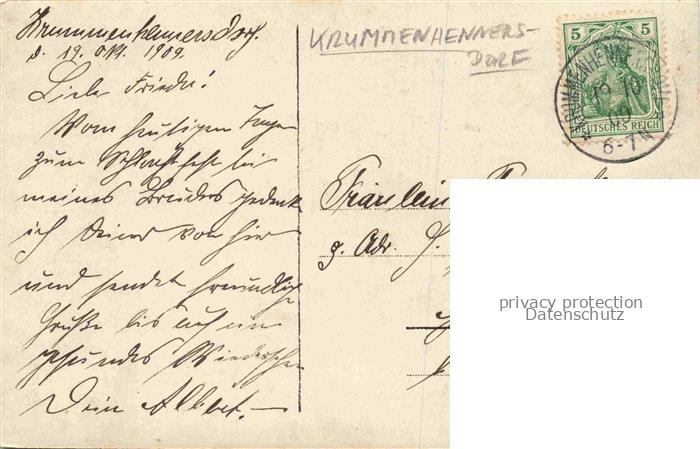 Krummenhennersdorf.
d. 19. Okt. 1909.
Liebe Frieda!
Vom heutigen Tage
zum Schlachtfest bei
meines Bruders gedenke
ich Deiner von hier
und sendet freundliche
Grüße bis auf ein
gesundes Wiedersehen
Dein Albert.
KRUMMENHENNERS-
DORF
5 5
DEUTSCHES REICH
KRUMMENHENNERSDORF
10
09
6-7N
Fräulein
z. Adr.
privacy protection
Datenschutz